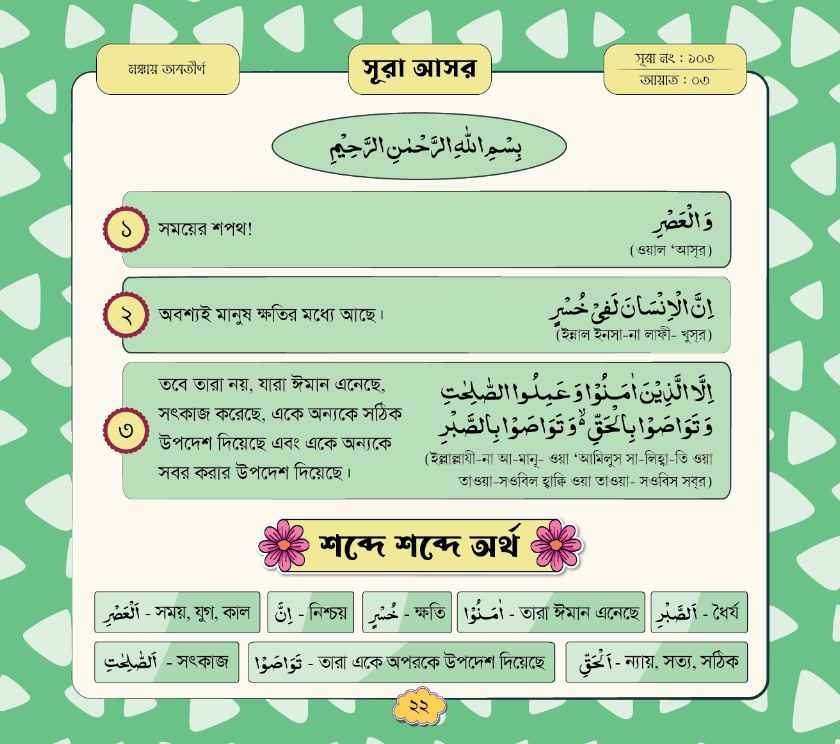 মক্কায় অবতীর্ণ
সূরা আসর
সূরা নং : ১০৩
আয়াত : ০৩
بِسْمِ اللّٰهِ الرَّحْمٰنِ الرَّحِيْمِ
১
সময়ের শপথ!
وَالْعَصْرِ
(ওয়াল ‘আস্‌র)
২
অবশ্যই মানুষ ক্ষতির মধ্যে আছে।
اِنَّ الْاِنْسَانَ لَفِيْ خُسْرٍ
(ইন্নাল ইনসা-না লাফী- খুস্‌র)
৩
তবে তারা নয়, যারা ঈমান এনেছে,
সৎকাজ করেছে, একে অন্যকে সঠিক
উপদেশ দিয়েছে এবং একে অন্যকে
সবর করার উপদেশ দিয়েছে।
اِلَّا الَّذِيْنَ اٰمَنُوْا وَعَمِلُوا الصّٰلِحٰتِ
وَتَوَاصَوْا بِالْحَقِّ ۙ وَتَوَاصَوْا بِالصَّبْرِ
(ইল্লাল্লাযী-না আ-মানূ- ওয়া ‘আমিলুস সা-লিহা-তি ওয়া
তাওয়া-সওবিল হাক্কি ওয়া তাওয়া- সওবিস সব্‌র)
শব্দে শব্দে অর্থ
اَلْعَصْرِ - সময়, যুগ, কাল
اِنَّ - নিশ্চয়
خُسْرٍ - ক্ষতি
اٰمَنُوْا - তারা ঈমান এনেছে
اَلصَّبْرِ - ধৈর্য
اَلصّٰلِحٰتِ - সৎকাজ
تَوَاصَوْا - তারা একে অপরকে উপদেশ দিয়েছে
اَلْحَقِّ - ন্যায়, সত্য, সঠিক
২২